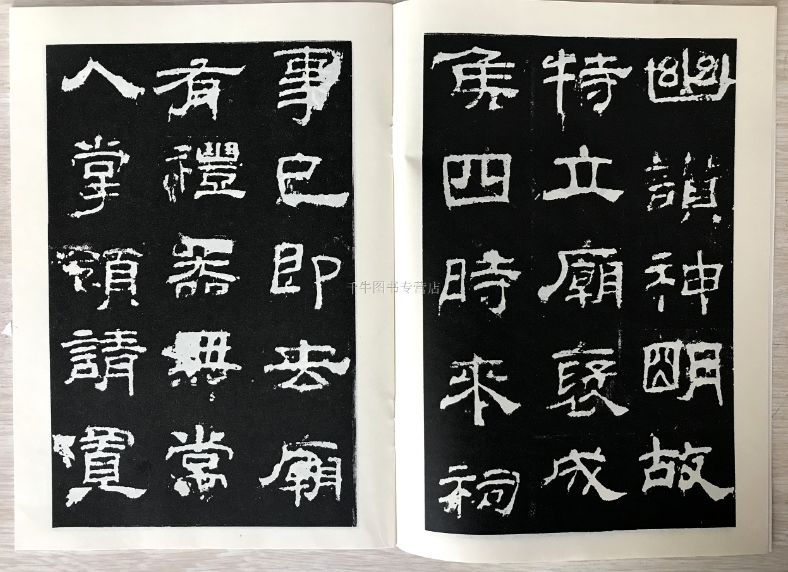 幽讃神明故
特立廟褒成
侯四時來祠
事已即去廟
有禮器無常
人掌領請置
千牛图书专营店